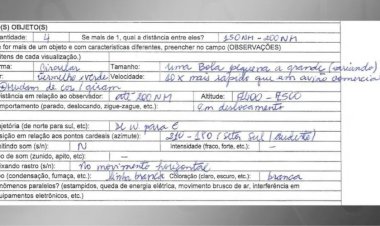 O(S) OBJETO(S)
uantidade: 4 Se mais de 1, qual a distância entre eles? 150NM-200NM
e for mais de um objeto e com características diferentes, preencher no campo (OBSERVAÇÕES)
itens de cada visualização.)
rma: Circular Tamanho: uma Bola pequena a grande (variando)
r: Vermelho, verde Velocidade: 10x mais rápido que um avião comercial
Mudam de cor/giram
istância em relação ao observador: até 200NM Altitude:
omportamento (parado, deslocando, zigue-zague, etc.) Em deslocamento
ajetória (de norte para sul, etc): para E
osição em relação aos pontos cardeais (azimute):
mitindo som (s/n): N Intensidade (fraco, forte, etc.) -
o de som (zunido, apito, etc): -
eixando rastro (s/n): No movimento horizontal
po (condensação, fumaça, etc.): linha branca Coloração (claro, escuro, etc.): branca
enômenos paralelos? (estampidos, queda de energia elétrica, movimento brusco de ar, interferência em
quipamentos eletrônicos, etc.)